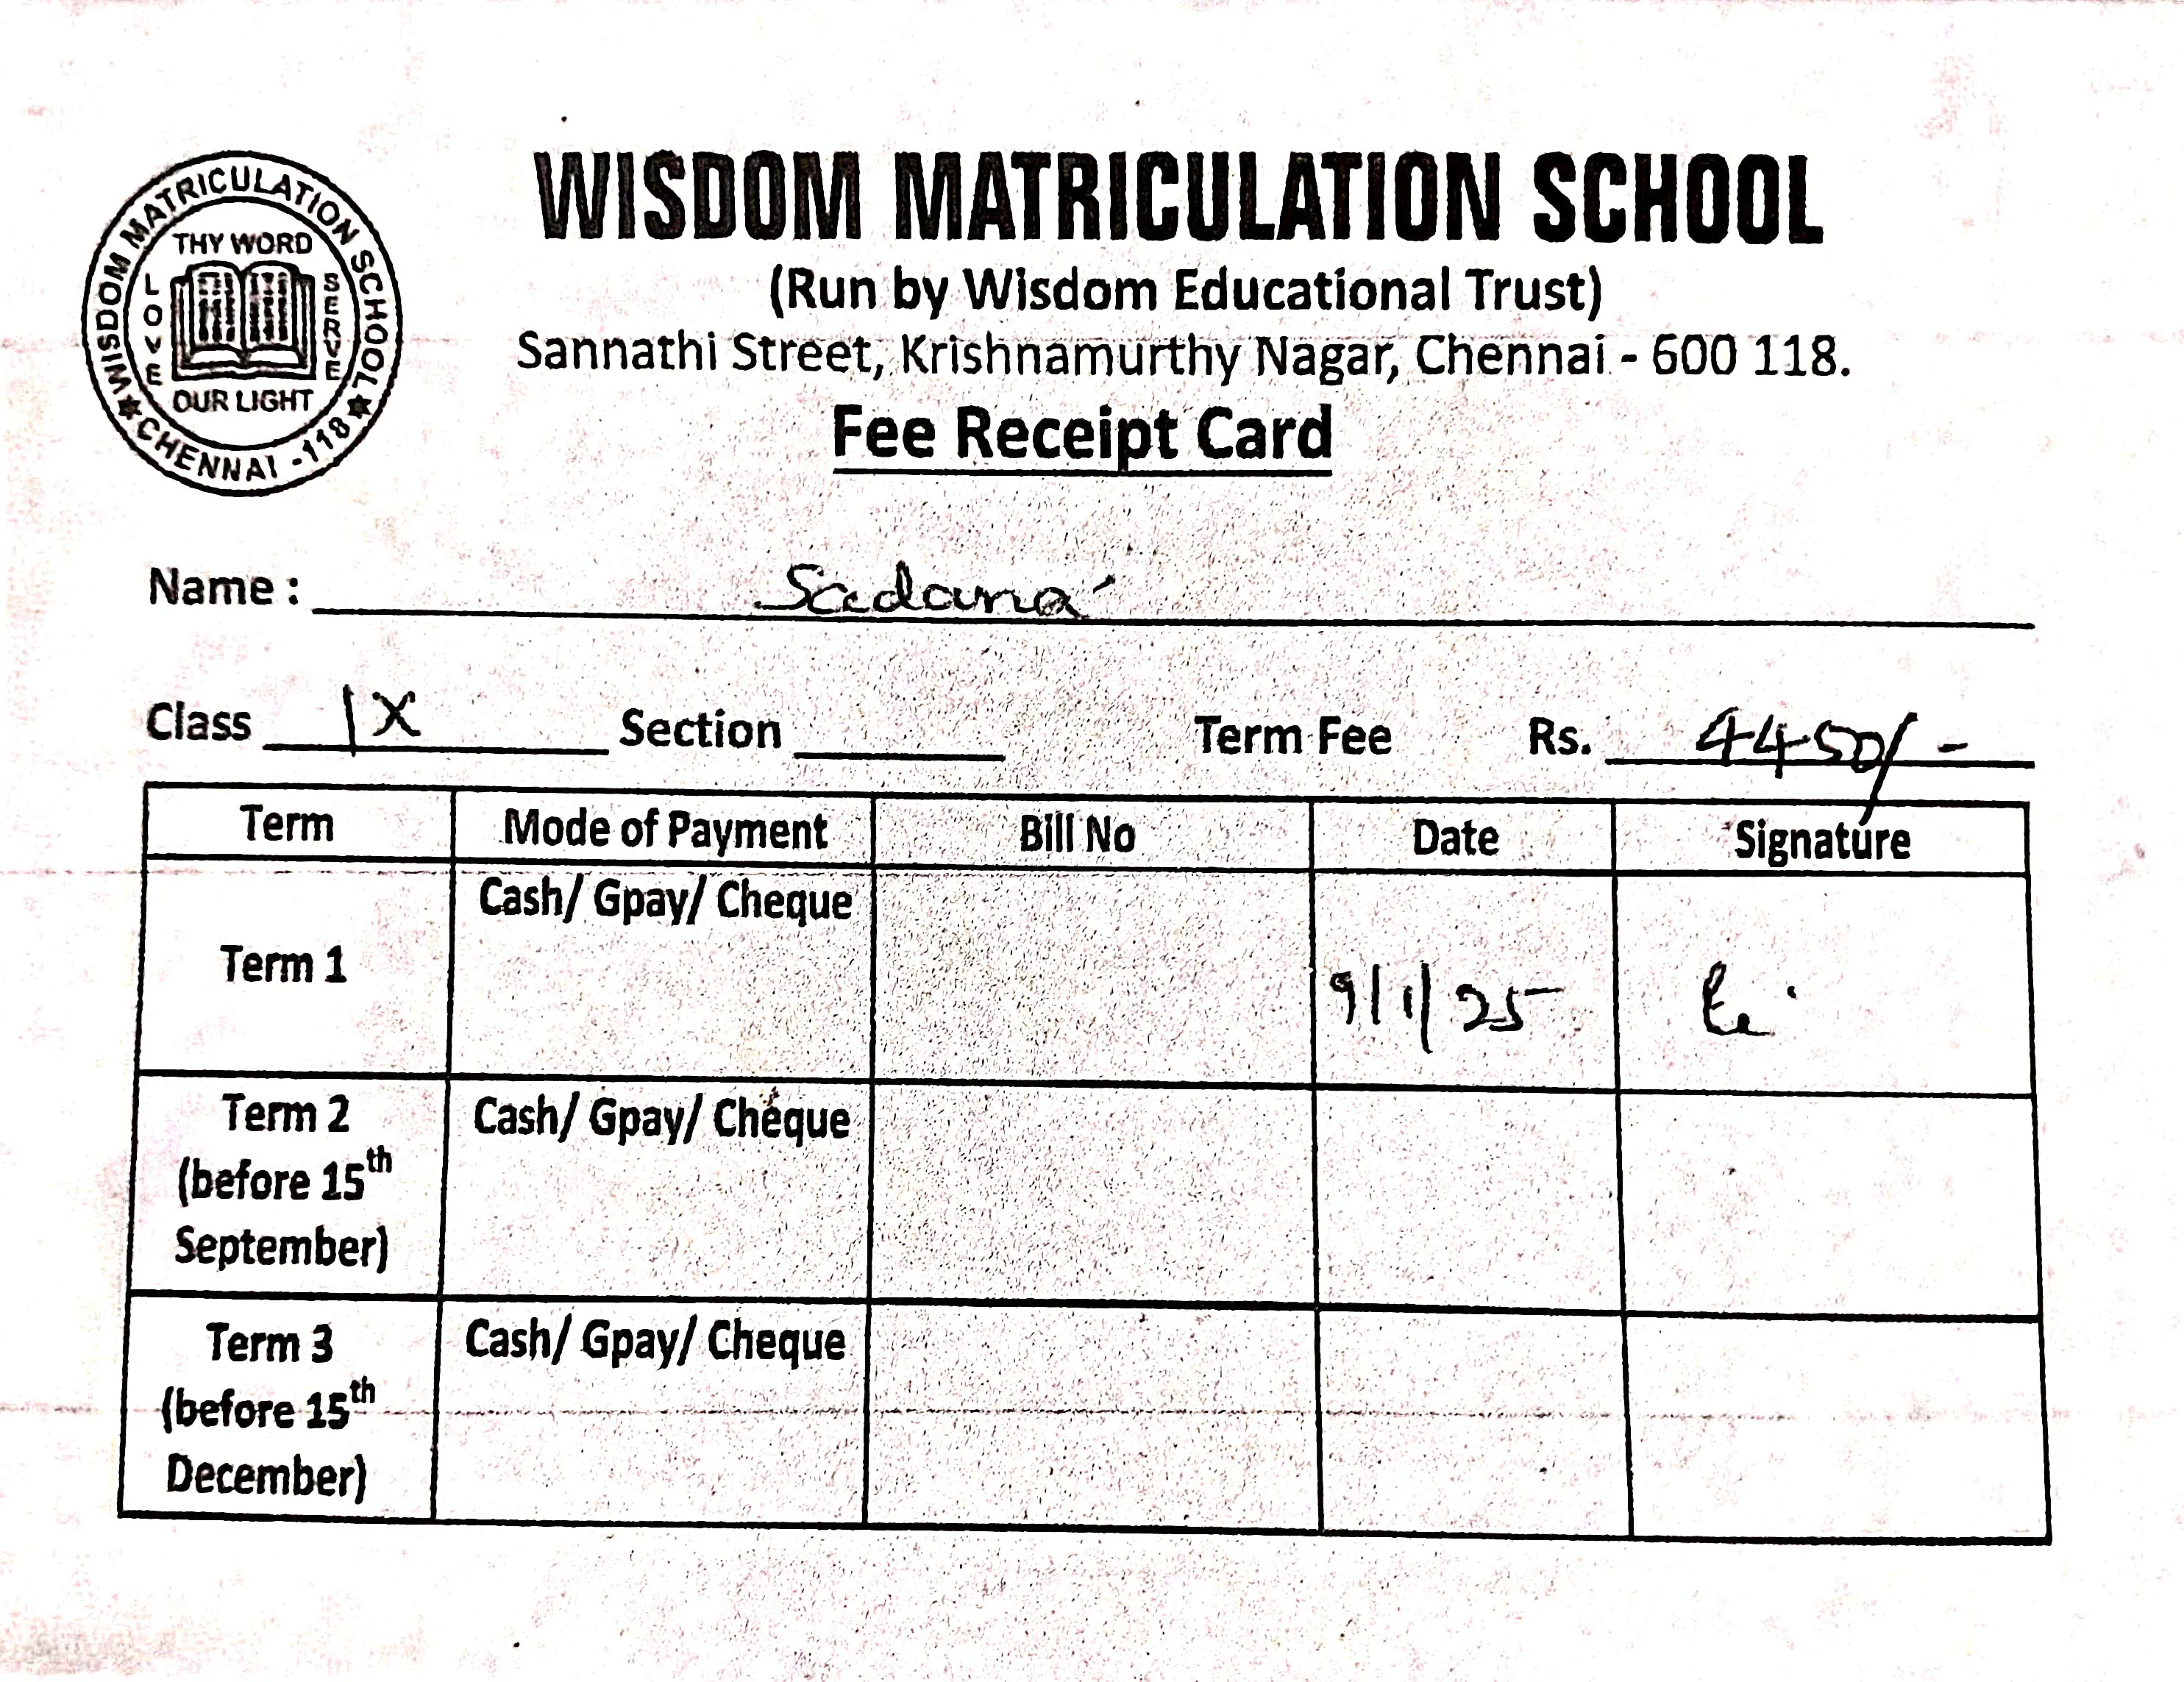 WISDOM MATRICULATION SCHOOL
CHENNAI - 118
THY WORD
LOVE
SERVE
OUR LIGHT
WISDOM MATRICULATION SCHOOL
(Run by Wisdom Educational Trust)
Sannathi Street, Krishnamurthy Nagar, Chennai - 600 118.
Fee Receipt Card
Name : Sadana
Class IX Section Term Fee Rs. 4450/-
Term Mode of Payment Bill No Date Signature
Term 1 Cash/ Gpay/ Cheque 9/1/25
Term 2 Cash/ Gpay/ Cheque
(before 15th
September)
Term 3 Cash/ Gpay/ Cheque
(before 15th
December)